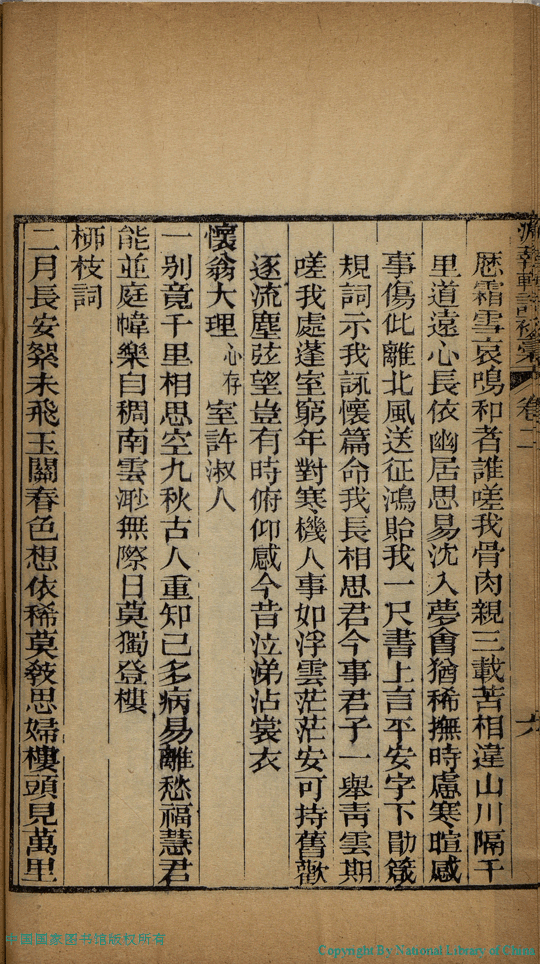 歴霜雪哀鳴和者誰嗟我骨肉親三載苦相違山川隔千
里道遠心長依幽居思易沈入夢會猶稀撫時慮寒暄感
事傷此離北風送征鴻貽我一尺書上言平安字下勖箴
規詞示我詠懷篇命我長相思君今事君子一舉靑雲期
嗟我處蓬室窮年對寒機人事如浮雲茫茫安可持舊歡
逐流塵弦望豈有時俯仰感今昔泣涕沾裳衣
懷翁大理心存室許淑人
一别竟千里相思空九秋古人重知己多病易離愁福慧君
能並庭幃樂自稠南雲渺無際日莫獨登樓
桞枝詞
二月長安絮未飛玉關春色想依稀莫敎思婦樓頭見萬里
卷二
六
中国国家图书馆版权所有
Copyright By National Library of China